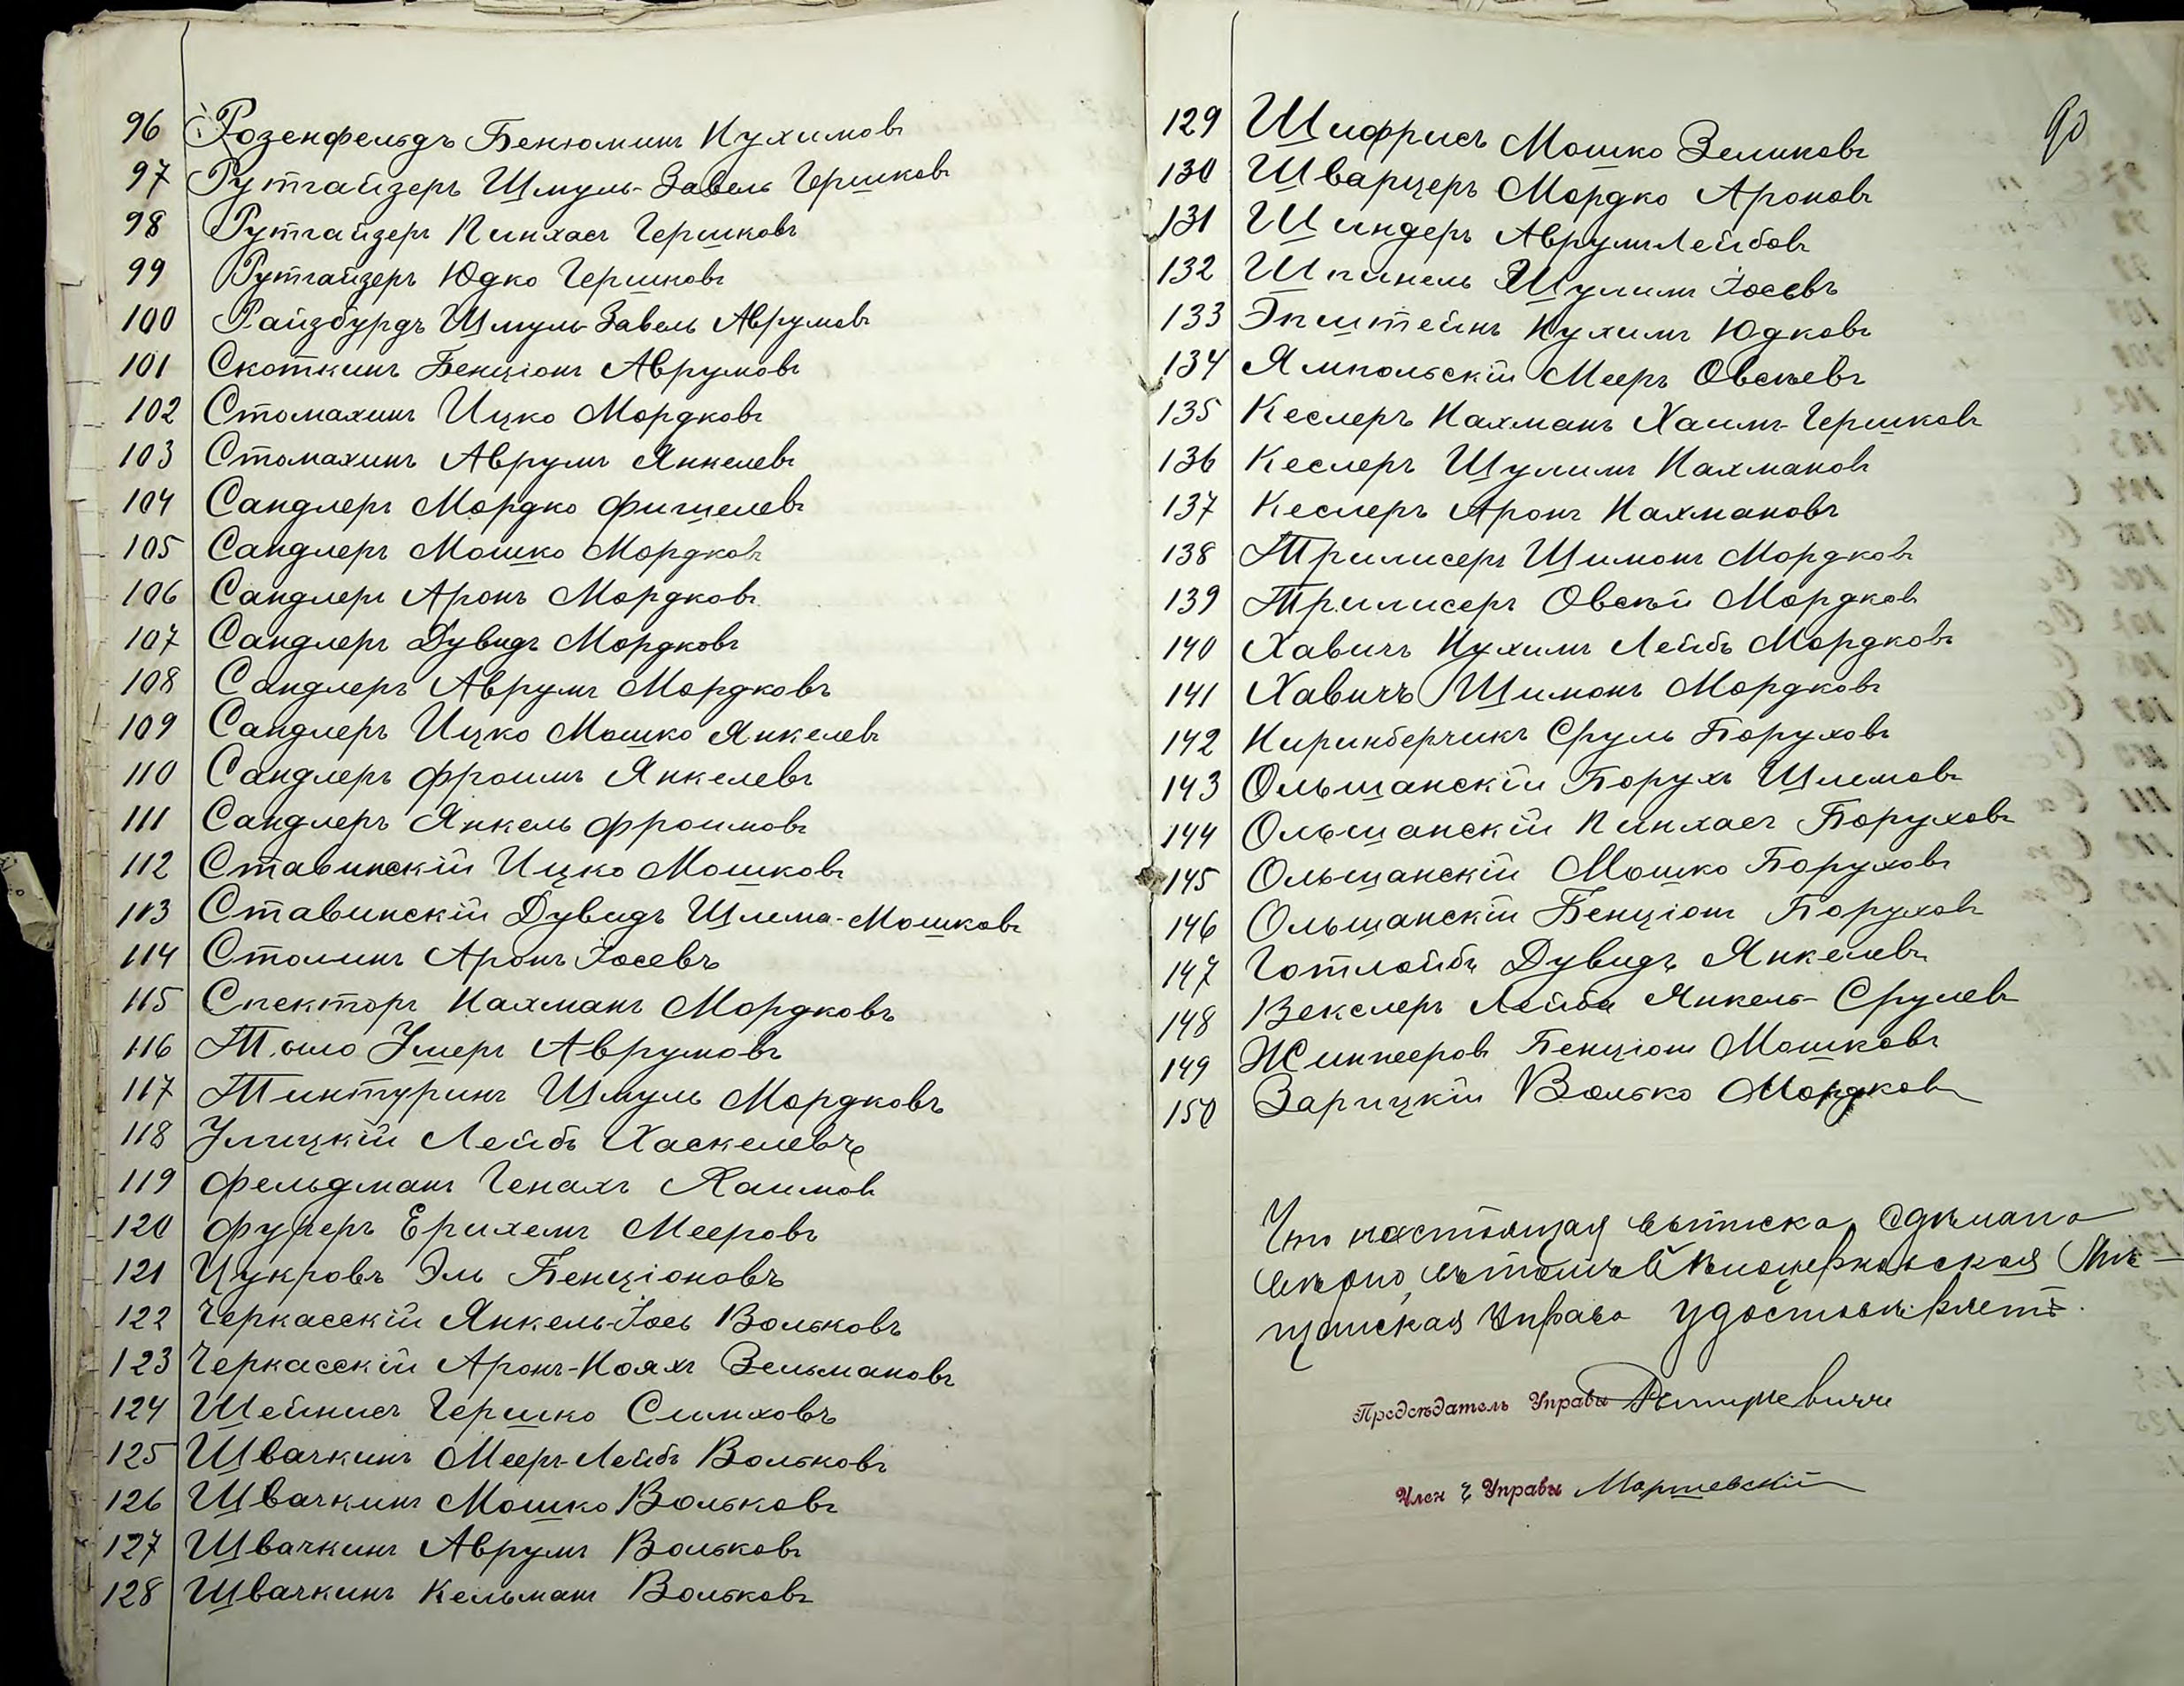 96 Розенфельдъ Бенюминъ Нухимовъ
97 Рутгайзеръ Шмуль-Завель Гершковъ
98 Рутгайзеръ Пинхасъ Гершковъ
99 Рутгайзеръ Юдко Гершковъ
100 Райзбурдъ Шмуль-Завель Аврумовъ
101 Скоткинъ Бенціонъ Аврумовъ
102 Стомахинъ Ицко Мордковъ
103 Стомахинъ Аврумъ Янкелевъ
104 Сандлеръ Мордко Фишелевъ
105 Сандлеръ Мошко Мордковъ
106 Сандлеръ Аронъ Мордковъ
107 Сандлеръ Дувидъ Мордковъ
108 Сандлеръ Аврумъ Мордковъ
109 Сандлеръ Ицко Мошко Янкелевъ
110 Сандлеръ Фроимъ Янкелевъ
111 Сандлеръ Янкель Фроимовъ
112 Ставинскій Ицко Мошковъ
113 Ставинскій Дувидъ Шлема-Мошковъ
114 Столинъ Аронъ Іосевъ
115 Спекторъ Нахманъ Мордковъ
116 Аврумовъ
117 Тинтуринъ Шмуль Мордковъ
118 Улицкій Лейбъ Хаскелевъ
119 Фельдманъ Генахъ Хаимовъ
120 Фуреръ Ерихемъ Мееровъ
121 Цукровъ Эль Бенціоновъ
122 Черкасскій Янкель-Іось Вольковъ
123 Черкасскій Аронъ-Ноахъ Зельмановъ
124 Шейнисъ Гершко Симховъ
125 Швачкинъ Мееръ-Лейбъ Вольковъ
126 Швачкинъ Мошко Вольковъ
127 Швачкинъ Аврумъ Вольковъ
128 Швачкинъ Кельманъ Вольковъ
90
129 Шифрисъ Мошко Зеликовъ
130 Шварцеръ Мордко Ароновъ
131 Шиндеръ Аврумъ Лейбовъ
132 Шпинель Шулимъ Іосевъ
133 Эпштейнъ Нухимъ Юдковъ
134 Ямпольскій Мееръ Овсѣевъ
135 Кеслеръ Нахманъ Хаимъ-Гершковъ
136 Кеслеръ Шулимъ Нахмановъ
137 Кеслеръ Аронъ Нахмановъ
138 Трилисеръ Шимонъ Мордковъ
139 Трилисеръ Овсѣй Мордковъ
140 Хавичъ Нухимъ Лейбъ Мордковъ
141 Хавичъ Шимонъ Мордковъ
142 Ниринберчикъ Сруль Боруховъ
143 Ольшанскій Борухъ Шлемовъ
144 Ольшанскій Пинхасъ Боруховъ
145 Ольшанскій Мошко Боруховъ
146 Ольшанскій Бенціонъ Боруховъ
147 Готлойбъ Дувидъ Янкелевъ
148 Векслеръ Лейба Янкель-Срулевъ
149 Бенціонъ Мошковъ
150 Зарицкій Волько Мордковъ
Что настоящая выписка сдѣлана
вѣрно, въ томъ Бѣлоцерковская Мѣ-
щанская Управа удостовѣряетъ.
Предсѣдатель Управы
Членъ Управы Маршевскій